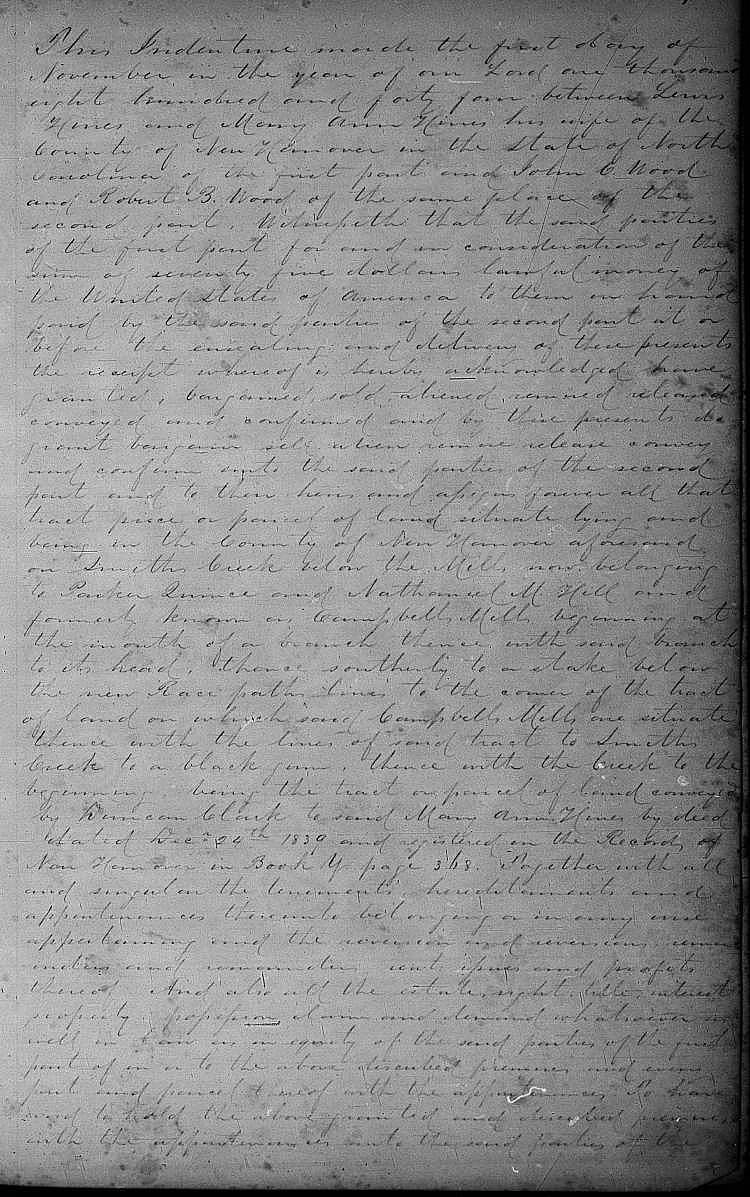 This Indenture made the first day of
November in the year of our Lord one thousand
eight hundred and forty four between Lewis
Hines and Mary Ann Hines his wife of the
County of New Hanover in the State of North
Carolina of the first part and John C. Wood
and Robert B. Wood of the same place of the
second part. Witnesseth that the said parties
of the first part for and in consideration of the
sum of seventy five dollars lawful money of
the United States of America to them in hand
paid by the said parties of the second part at or
before the ensealing and delivery of these presents
the receipt whereof is hereby acknowledged have
granted, bargained, sold, aliened, remised released
conveyed and confirmed and by these presents do
grant bargain sell alien remise release convey
and confirm unto the said parties of the second
part and to their heirs and assigns forever all that
tract piece or parcel of land situate lying and
being in the County of New Hanover aforesaid
on Smiths Creek below the Mills now belonging
to Parker Quince and Nathaniel M. Hill and
formerly known as Campbells Mills beginning at
the mouth of a branch thence with said branch
to its head, thence southerly to a stake below
the new Race paths lines to the corner of the tract
of land on which said Campbells Mills are situate
thence with the lines of said tract to Smiths
Creek to a black gum, thence with the Creek to the
beginning. being the tract or parcel of land conveyed
by Duncan Clark to said Mary Ann Hines by deed
dated Decr 24th 1839 and registered in the Records of
New Hanover in Book Y page 368. Together with all
and singular the tenements, hereditaments and
appurtenances thereunto belonging or in any wise
appertaining and the reversion and reversions, rema
inders and remainders rents issues and profits
thereof. And also all the estate, right, title, interest
property, possession claim and demand whatsoever as
well in Law as in equity of the said parties of the first
part of in or to the above described premises and every
part and parcel thereof with the appurtenances. To have
and to hold the above granted and described premises
with the appurtenances unto the said parties of the